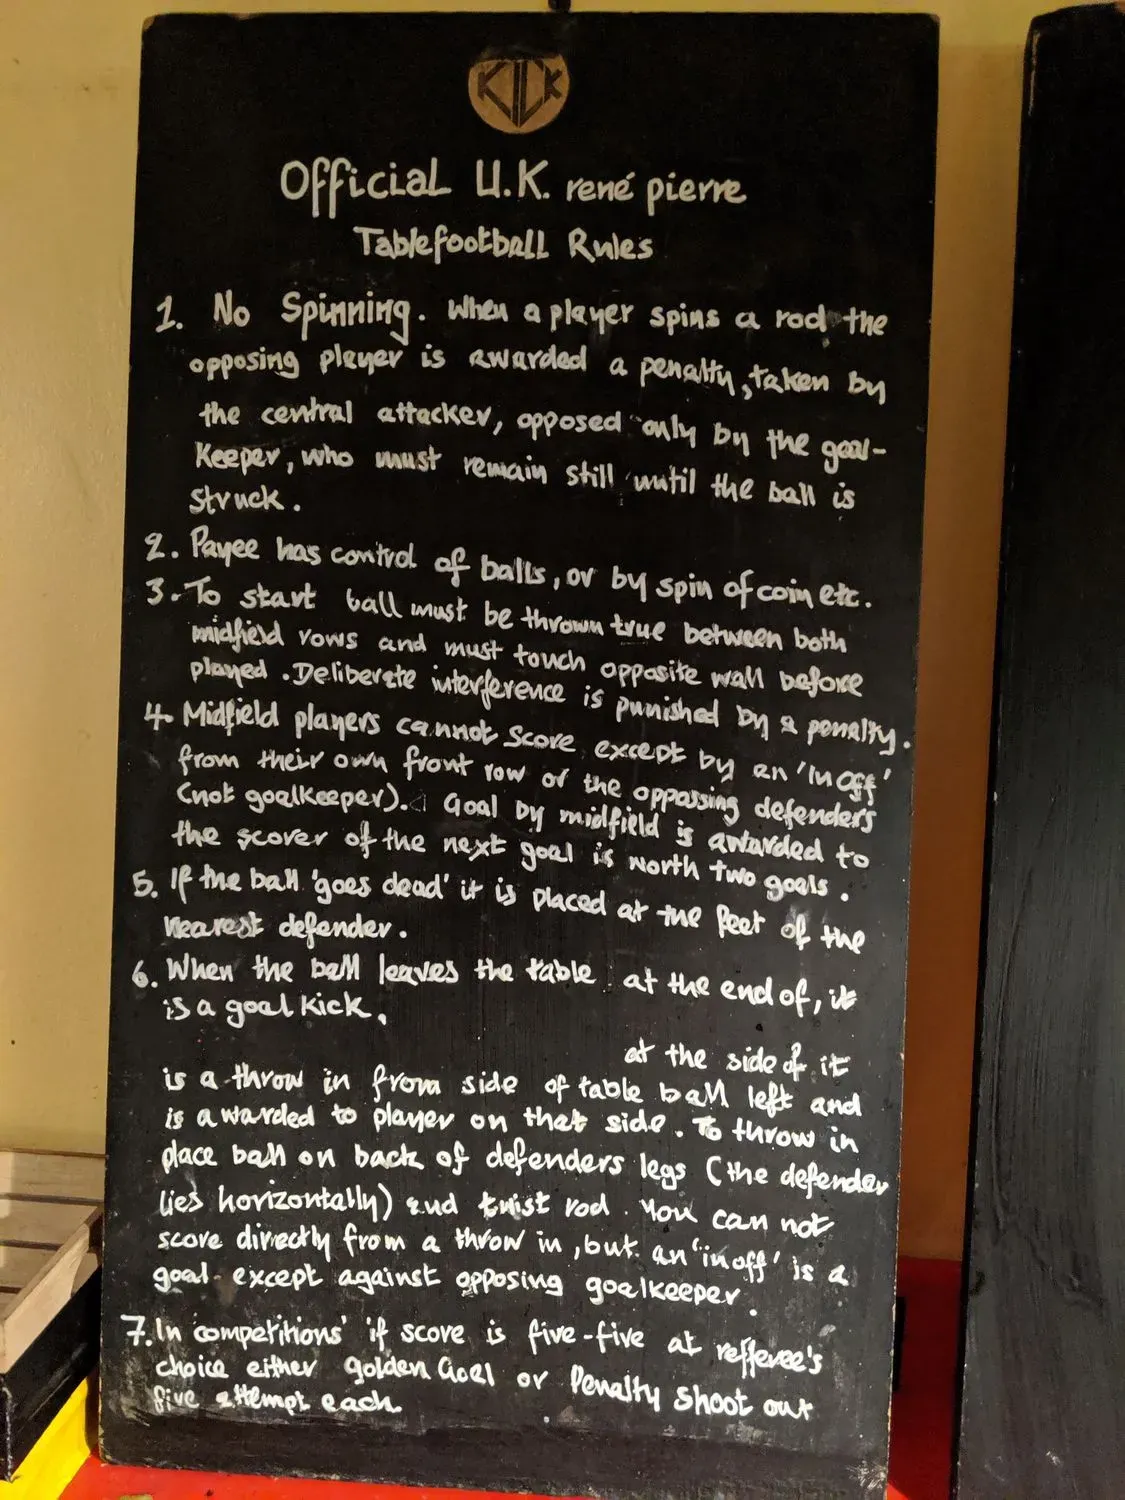 KICK
Official U.K. rené pierre
Tablefootball Rules
1. No Spinning. When a player spins a rod the
opposing player is awarded a penalty, taken by
the central attacker, opposed only by the goal-
Keeper, who must remain still until the ball is
struck.
2. Payee has control of balls, or by spin of coin etc.
3. To start ball must be thrown true between both
midfield rows and must touch opposite wall before
played. Deliberate interference is punished by a penalty.
4. Midfield players cannot score except by an 'in off'
from their own front row or the oppassing defenders
(not goalkeeper). Goal by midfield is awarded to
the scorer of the next goal is worth two goals.
5. If the ball 'goes dead' it is placed at the feet of the
nearest defender.
6. When the ball leaves the table at the end of, it
is a goal kick,
at the side of it
is a throw in from side of table ball left and
is awarded to player on that side. To throw in
place ball on back of defenders legs (the defender
lies horizontally) and twist rod. You can not
score directly from a throw in, but an 'in off' is a
goal except against opposing goalkeeper.
7. In 'competitions' if score is five-five at refferee's
choice either golden Goel or Penalty Shoot out
five attempt each